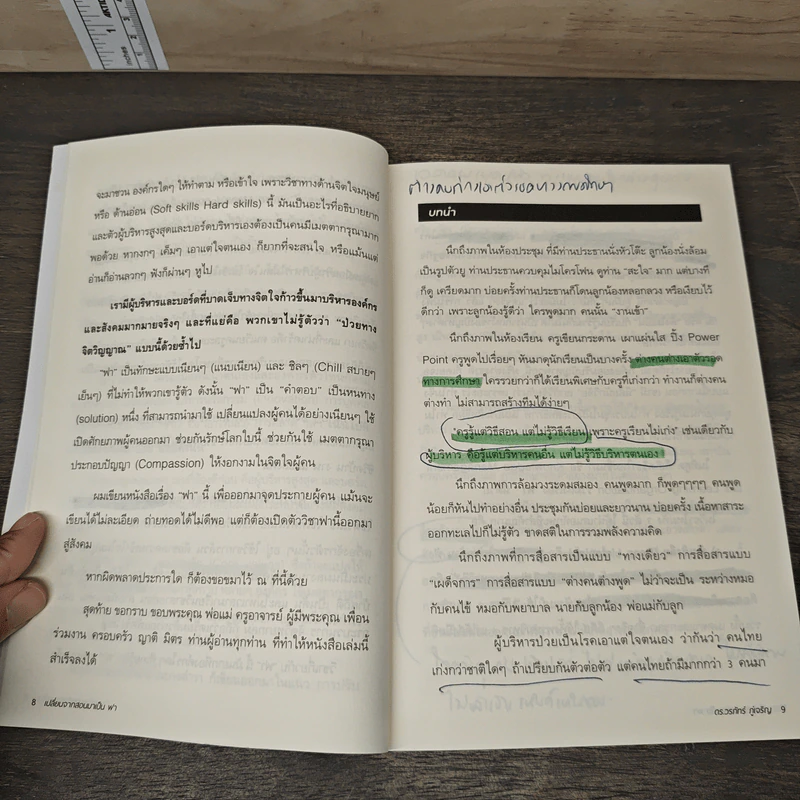 จะมาชวน องค์กรใดๆ ให้ทำตาม หรือเข้าใจ เพราะวิชาทางด้านจิตใจมนุษย์
หรือ ด้านอ่อน (Soft skills Hard skills) นี้ มันเป็นอะไรที่อธิบายยาก
และตัวผู้บริหารสูงสุดและบอร์ดบริหารเองต้องเป็นคนมีเมตตากรุณามาก
พอด้วย หากงกๆ เค็มๆ เอาแต่ใจตนเอง ก็ยากที่จะสนใจ หรือแม้นแต่
อ่านก็อ่านลวกๆ ฟังก็ผ่านๆ หูไป
เรามีผู้บริหารและบอร์ดที่บาดเจ็บทางจิตใจก้าวขึ้นมาบริหารองค์กร
และสังคมมากมายจริงๆ และที่แย่คือ พวกเขาไม่รู้ตัวว่า “ป่วยทาง
จิตวิญญาณ” แบบนี้ด้วยซ้ำไป
“ฟา” เป็นทักษะแบบเนียนๆ (แนบเนียน) และ ชิลๆ (Chill สบายๆ
เย็นๆ) ที่ไม่ทำให้พวกเขารู้ตัว ดังนั้น “ฟา” เป็น “คำตอบ” เป็นหนทาง
(solution) หนึ่ง ที่สามารถนำมาใช้ เปลี่ยนแปลงผู้คนได้อย่างเนียนๆ ใช้
เปิดศักยภาพผู้คนออกมา ช่วยกันรักษ์โลกใบนี้ ช่วยกันใช้ เมตตากรุณา
ประกอบปัญญา (Compassion) ให้งอกงามในจิตใจผู้คน
ผมเขียนหนังสือเรื่อง “ฟา” นี้ เพื่อออกมาจุดประกายผู้คน แม้นจะ
เขียนได้ไม่ละเอียด ถ่ายทอดได้ไม่ดีพอ แต่ก็ต้องเปิดตัววิชาฟานี้ออกมา
สู่สังคม
หากผิดพลาดประการใด ก็ต้องขอขมาไว้ ณ ที่นี้ด้วย
สุดท้าย ขอกราบ ขอบพระคุณ พ่อแม่ ครูอาจารย์ ผู้มีพระคุณ เพื่อน
ร่วมงาน ครอบครัว ญาติ มิตร ท่านผู้อ่านทุกท่าน ที่ทำให้หนังสือเล่มนี้
สำเร็จลงได้
8 เปลี่ยนจากสอนมาเป็น ฟา
บทนำ
นึกถึงภาพในห้องประชุม ที่มีท่านประธานนั่งหัวโต๊ะ ลูกน้องนั่งล้อม
เป็นรูปตัวยู ท่านประธานควบคุมไมโครโฟน ดูท่าน “สะใจ” มาก แต่บางที
ก็ดู เครียดมาก บ่อยครั้งท่านประธานก็โดนลูกน้องหลอกลวง หรือเงียบไว้
ดีกว่า เพราะลูกน้องรู้ดีว่า ใครพูดมาก คนนั้น “งานเข้า”
นึกถึงภาพในห้องเรียน ครูเซียนกระดาน เผาแผ่นใส ปิ้ง Power
Point ครูพูดไปเรื่อยๆ หันมาดุนักเรียนเป็นบางครั้ง ต่างคนต่างเอาตัวรอด
ทางการศึกษา ใครรวยกว่าก็ได้เรียนพิเศษกับครูที่เก่งกว่า ทำงานก็ต่างคน
ต่างทำ ไม่สามารถสร้างทีมได้ง่ายๆ
“ครูรู้แต่วิธีสอน แต่ไม่รู้วิธีเรียน เพราะครูเรียนไม่เก่ง” เช่นเดียวกับ
ผู้บริหาร คือรู้แต่บริหารคนอื่น แต่ไม่รู้วิธีบริหารตนเอง
นึกถึงภาพการล้อมวงระดมสมอง คนพูดมาก ก็พูดๆๆๆๆ คนพูด
น้อยก็หันไปทำอย่างอื่น ประชุมกันบ่อยและยาวนาน บ่อยครั้ง เนื้อหาสาระ
ออกทะเลไปก็ไม่รู้ตัว ขาดสติในการรวมพลังความคิด
นึกถึงภาพที่การสื่อสารเป็นแบบ “ทางเดียว” การสื่อสารแบบ
“เผด็จการ” การสื่อสารแบบ “ต่างคนต่างพูด” ไม่ว่าจะเป็น ระหว่างหมอ
กับคนไข้ หมอกับพยาบาล นายกับลูกน้อง พ่อแม่กับลูก
ผู้บริหารป่วยเป็นโรคเอาแต่ใจตนเอง ว่ากันว่า คนไทย
เก่งกว่าชาติใดๆ ถ้าเปรียบกันตัวต่อตัว แต่คนไทยถ้ามีมากกว่า 3 คนมา
ดร.วรภัทร์ ภู่เจริญ 9